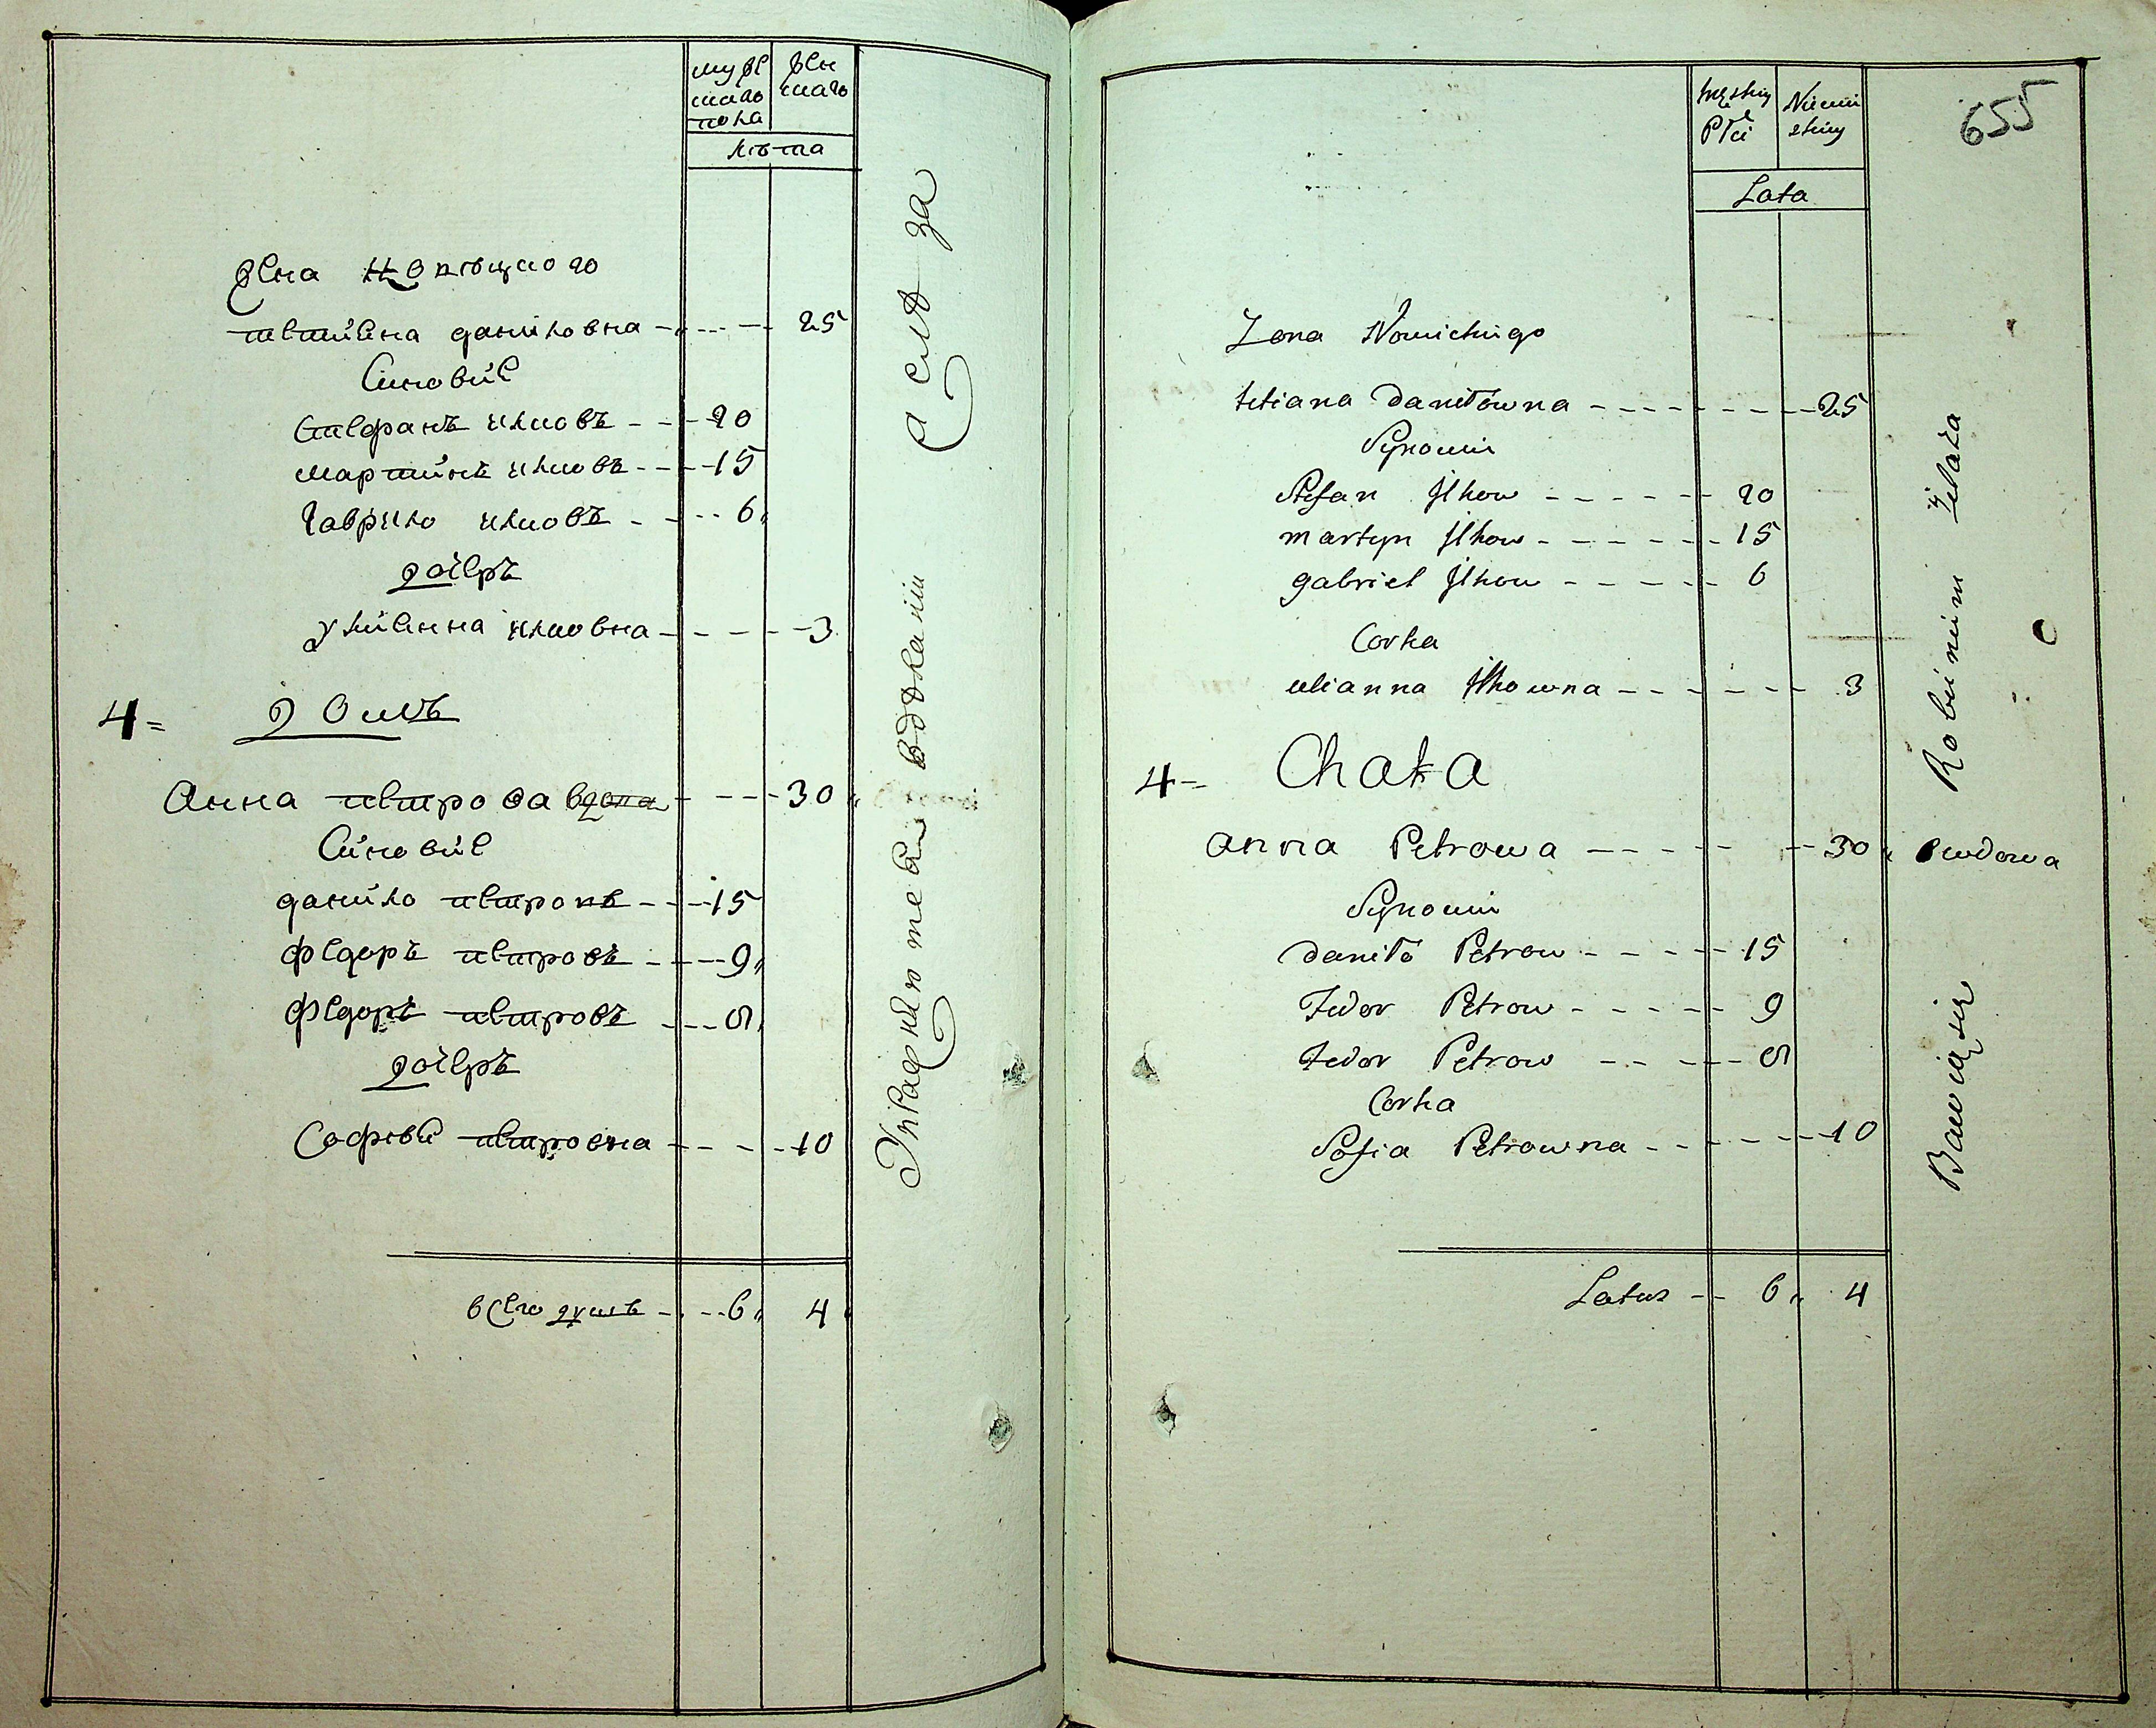 мужеска пола
женскаго
лѣта
Жена Новѣцкого
тетияна даниловна 25
Синовие
Стефанъ илковъ 20
мартинъ илковъ 15
Гаврило илковъ 6
дочеръ
улиянна илковна 3
4 = домъ
Анна петрова вдова 30
Синовие
данило петровъ 15
федоръ петровъ 9
федоръ петровъ 5
дочеръ
Софѣя петровна 10
всего душъ 6 4
męskiey Płci
Niewieskiey
Lata
655
Zona Nowickiego
tetiana daniłowna 25
Synowie
Stefan Jlkow 20
martyn Jlkow 15
gabriel Jlkow 6
Corka
ulianna Jlkowna 3
4 = Chata
anna Petrowa 30 wdowa
Synowie
daniło Petrow 15
Fedor Petrow 9
Fedor Petrow 5
Corka
Sofia Petrowna 10
Latus 6 4
Bawią się Robieniem Żelaza